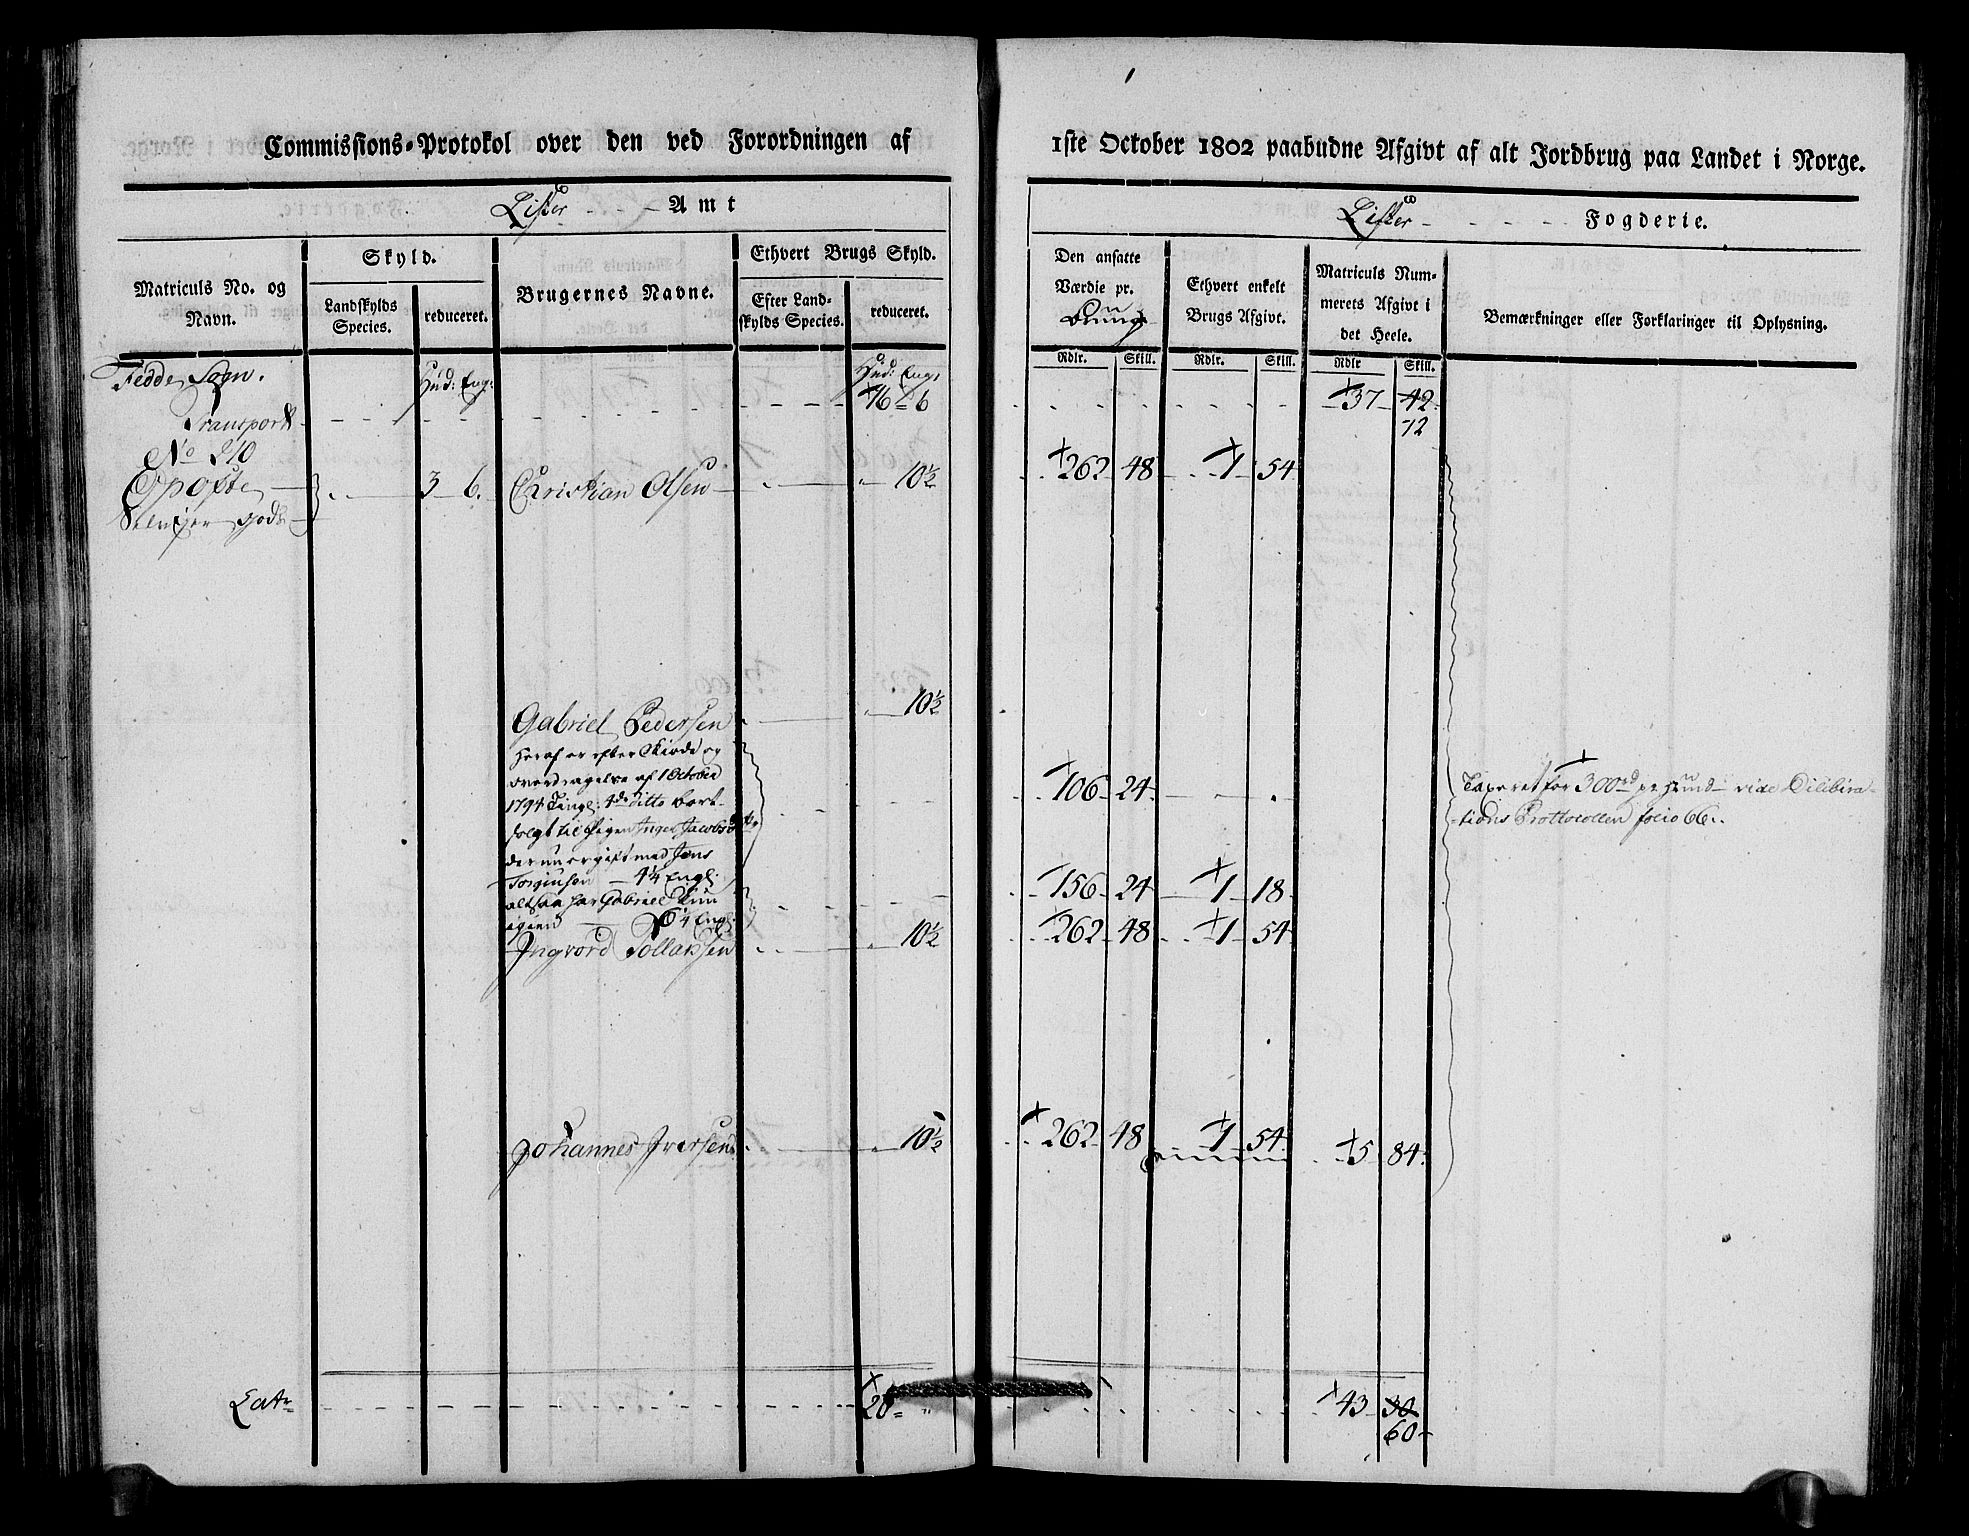 Commissions-Protokol over den ved Forordningen af
Lister Amt
Matriculs No. og Navn.
Skyld.
Landskylds Species.
reduceret.
Brugernes Navne.
Ethvert Brugs Skyld.
Efter Landskylds Species.
reduceret.
Fedde Sogn.
Hud: Eng:
Hud: Eng:
Transport
16 " 6
No 210
Opofte
3 6.
Christian Olsen
" 10½
gods
Gabriel Pedersen
" 10½
Heraf er efter Skiøde og
overdragelse af 1 October
1794 Tingl: 4de ditto bort-
solgt til Pigen Inger Jacobsd
der nu er gift med Jens
Torginsen 4¼ Engl:
altsaa har Gabriel kun
igien 6¼ Engl:
Ingvord Tollaksen
" 10½
Johannes Iversen
" 10½
Latr
20 = "
1ste October 1802 paabudne Afgivt af alt Jordbrug paa Landet i Norge.
Lister Fogderie.
Den ansatte Værdie pr.
Bruug
Ethvert enkelt Brugs Afgivt.
Matriculs Nummerets Afgivt i det Heele.
Bemærkninger eller Forklaringer til Oplysning.
Rdlr. Skill. Rdlr. Skill. Rdlr Skill.
37 42
12
262 48 1 54
106 24
Taxeret for 300rd pr Huud vide Dilibira-
tions Prottocollen folio 66.
156 24 1 18
262 48 1 54
262 48 1 54 5 84
43 30
60